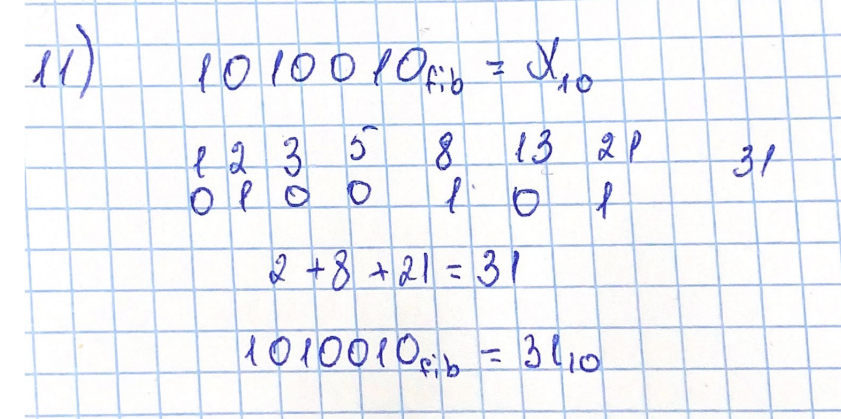 11) 1010010fib = X10
1 2 3 5 8 13 21 31
0 1 0 0 1 0 1
2 + 8 + 21 = 31
1010010fib = 3110